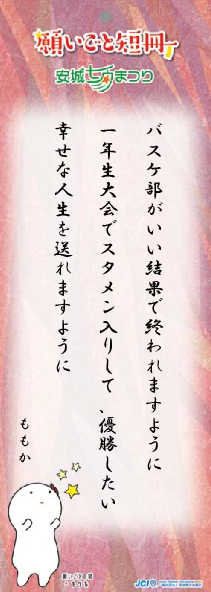 願いごと短冊
安城七夕まつり
バスケ部がいい結果で終われますように
一年生大会でスタメン入りして、優勝したい
幸せな人生を送れますように
ももか
願いごと短冊
JCI